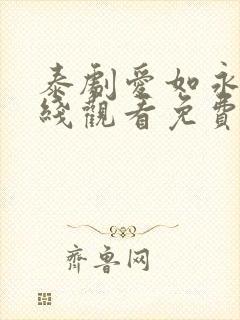 泰劇愛如永
綫觀看免費
齊魯网